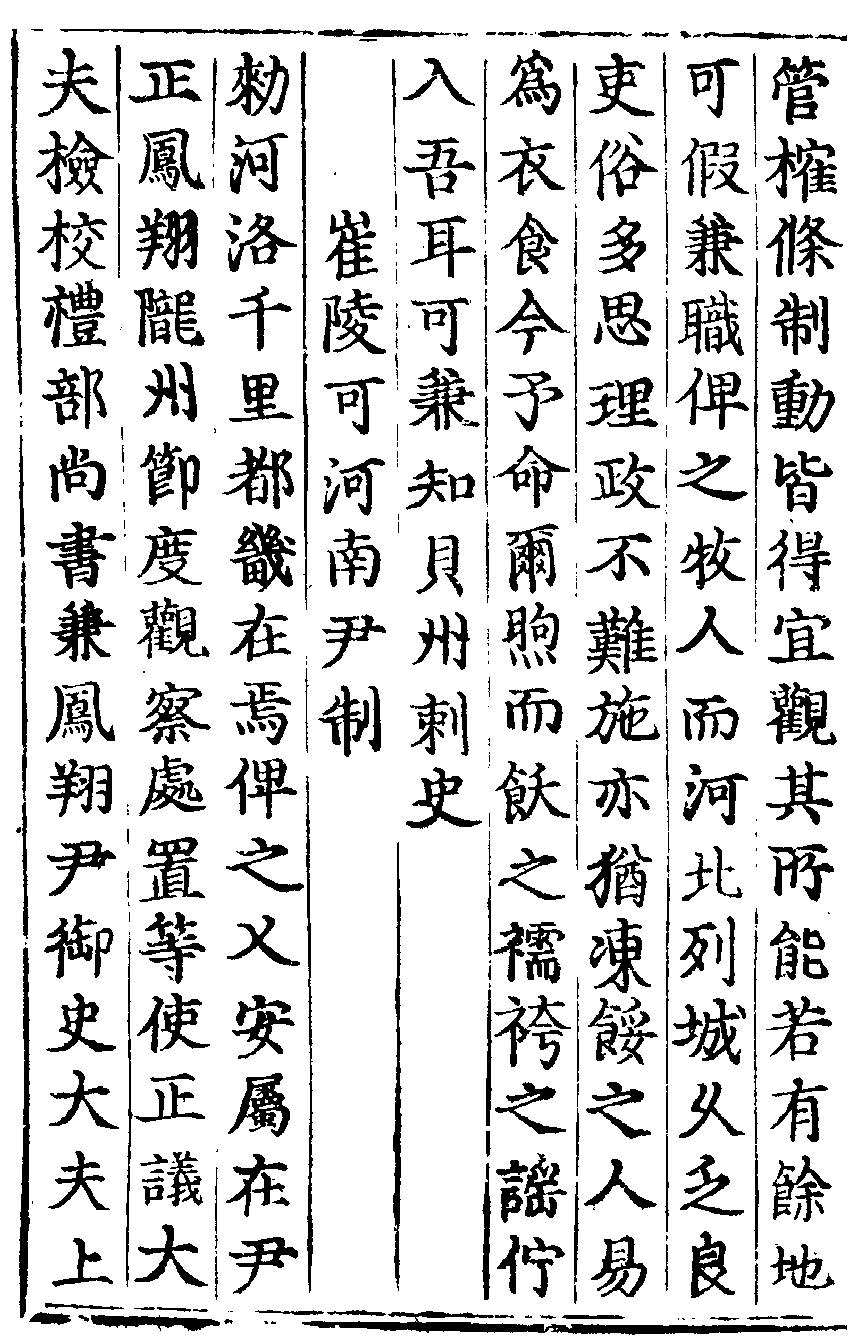 管榷條制動皆得宜觀其所能若有餘地
可假兼職俾之牧人而河北列城久乏良
吏俗多思理政不難施亦猶凍餒之人易
為衣食今予命爾煦而飫之襦袴之謡佇
入吾耳可兼知貝州刺史
崔陵可河南尹制
勑河洛千里都畿在焉俾之乂安屬在尹
正鳳翔隴州節度觀察處置等使正議大
夫檢校禮部尚書兼鳳翔尹御史大夫上